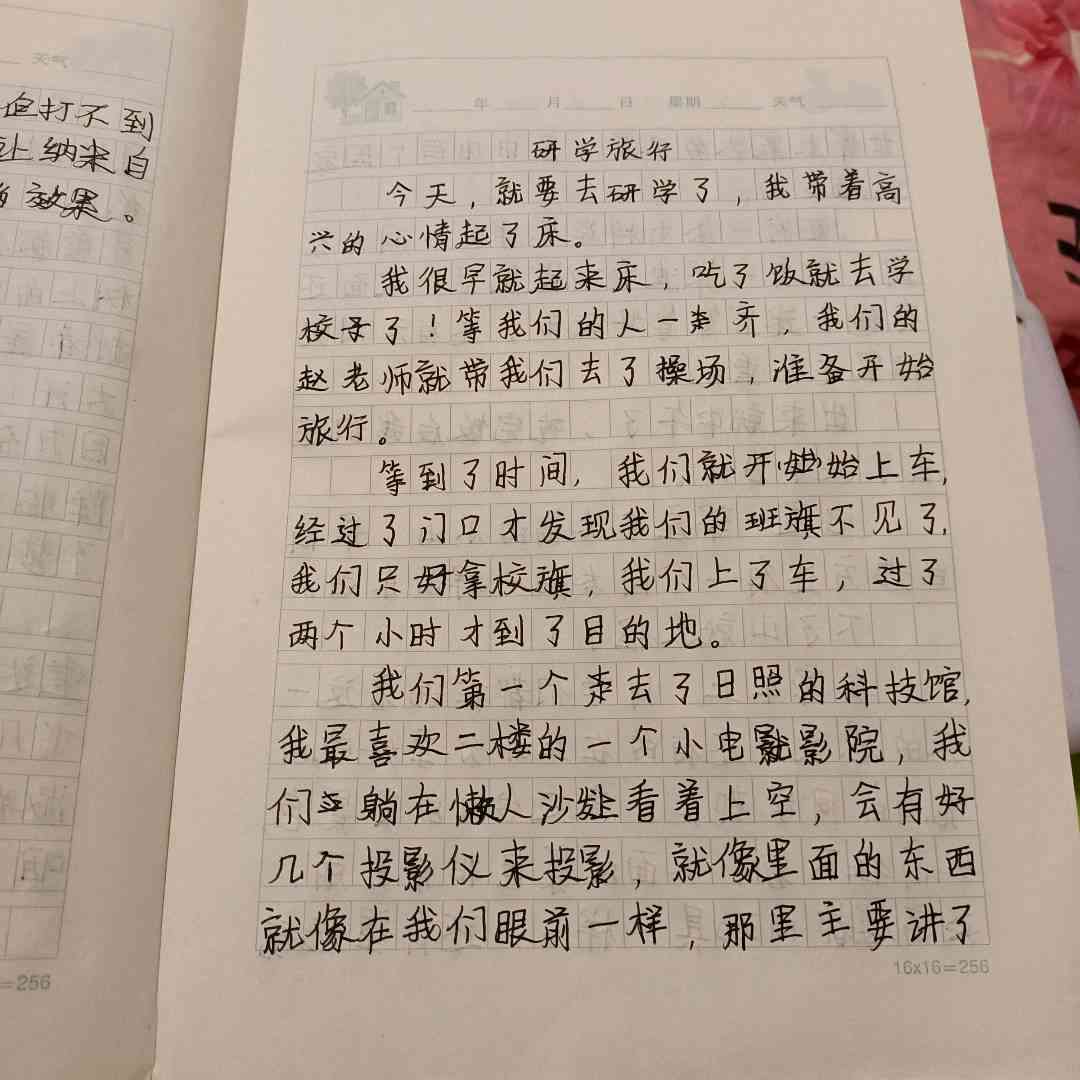 天气
但打不到
让纳米自
效果。
=256
年 月 日 星期 天气
研学旅行
今天，就要去研学了，我带着高
兴的心情起了床。
我很早就起来床，吃了饭就去学
校了！等我们的人一走齐，我们的
赵老师就带我们去了操场，准备开始
旅行。
等到了时间，我们就开始上车，
经过了门口才发现我们的班旗不见了，
我们只好拿校旗，我们上了车，过了
两个小时才到了目的地。
我们第一个走去了日照的科技馆，
我最喜欢二楼的一个小电影院，我
们躺在懒人沙发上看着上空，会有好
几个投影仪来投影，就像里面的东西
就像在我们眼前一样，那里主要讲了
16x16=256